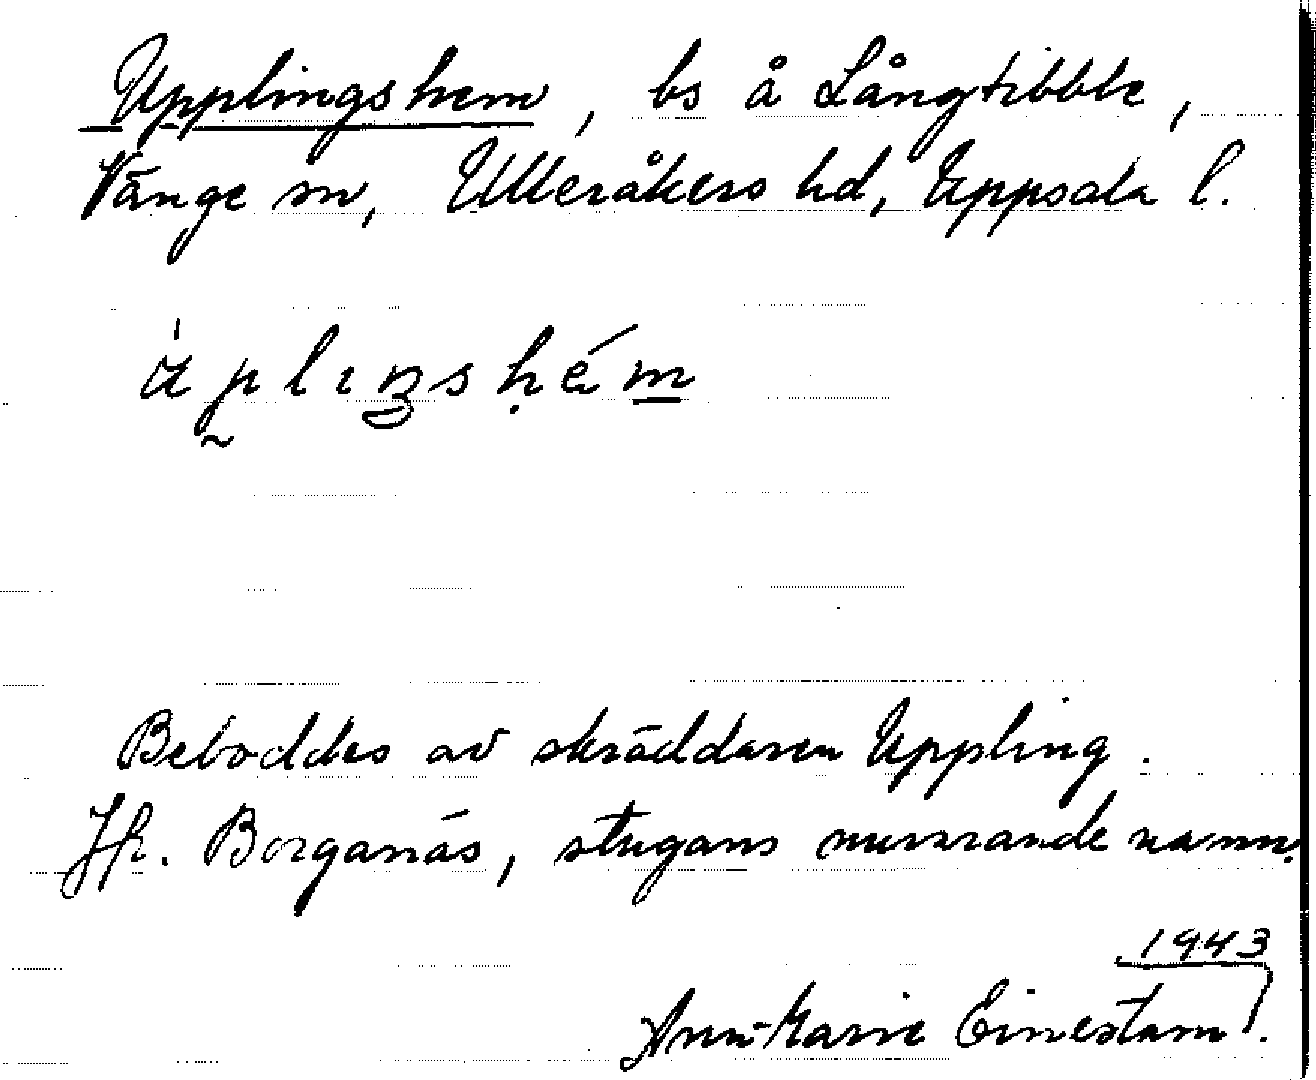 Upplingshem, bs å Långtibble,
Vänge sn, Ulleråkers hd, Uppsala l.
Beboddes av skräddaren Uppling.
Jfr. Borganäs, stugans nuvarande namn.
1943
Ann-Marie Einestam.